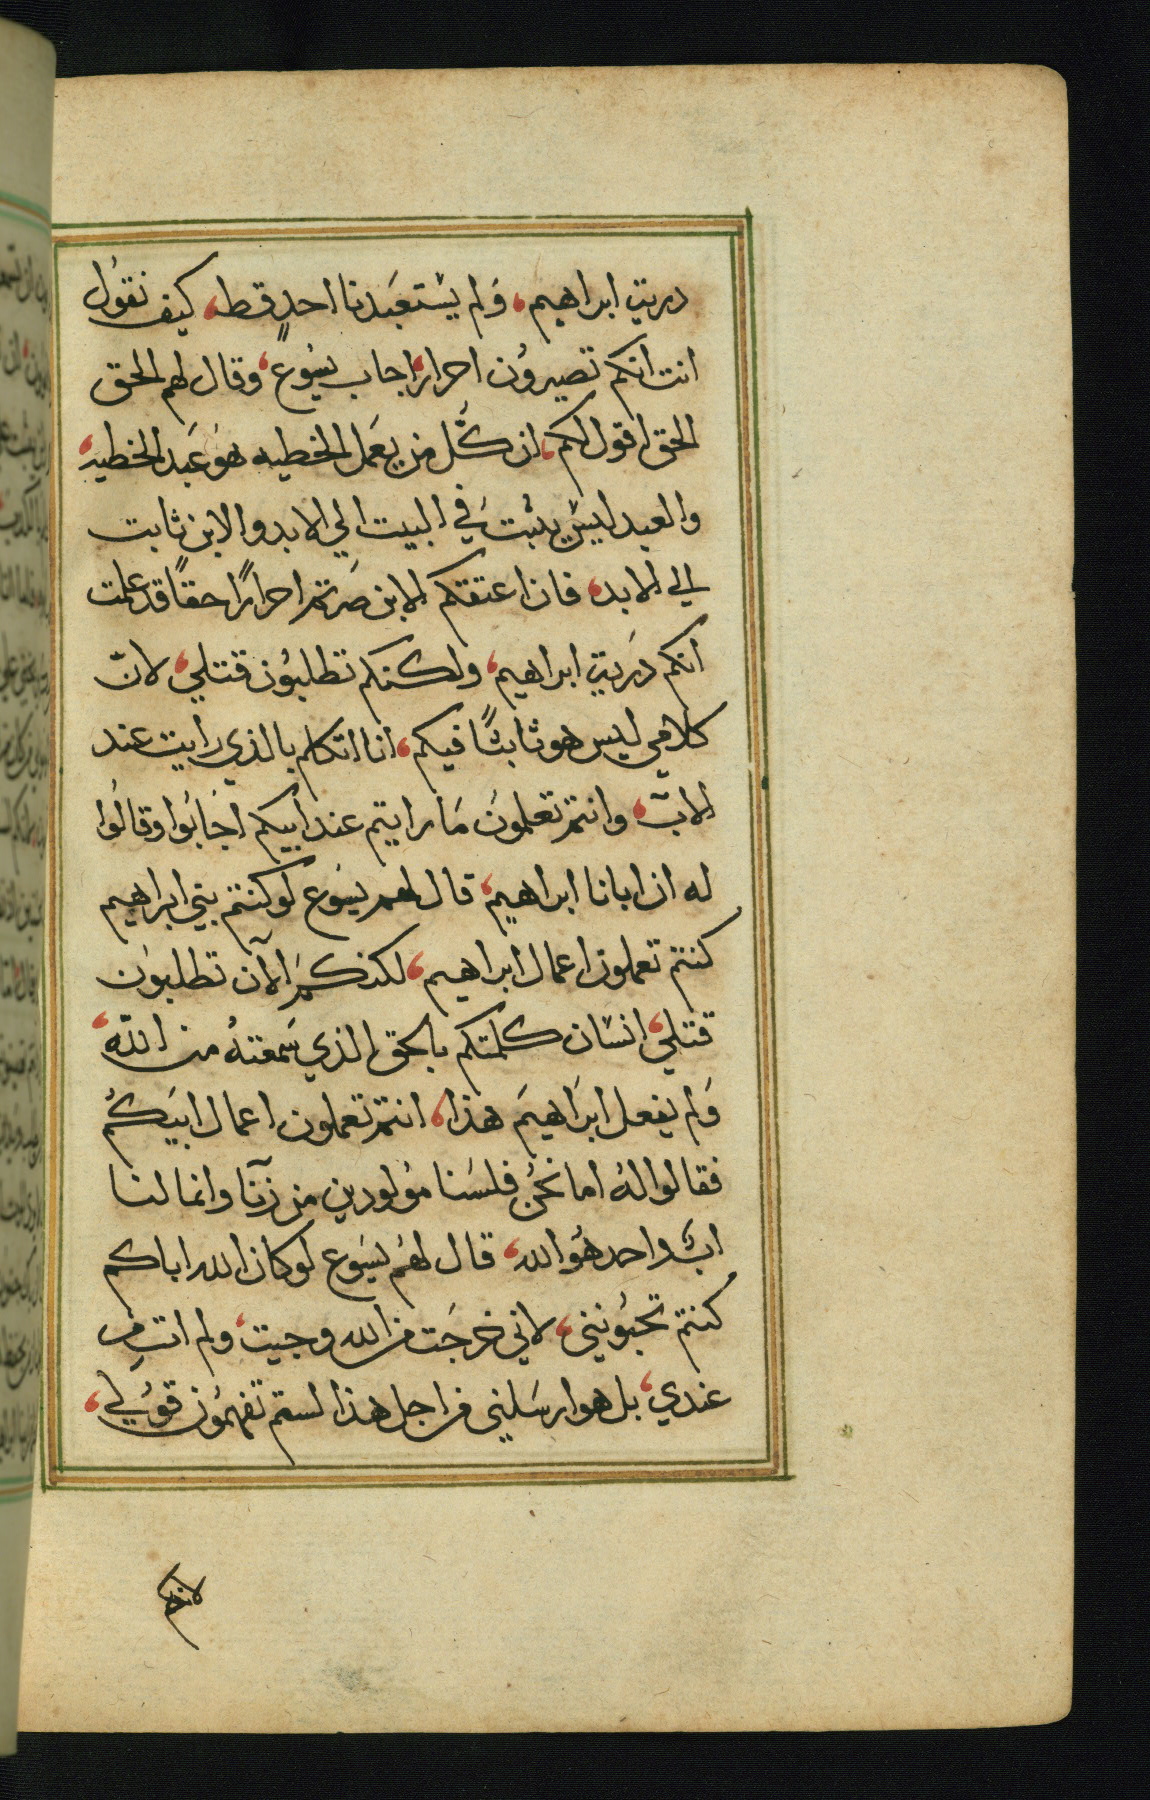 دريت ابراهيم، وَلم يسْتعبَدنا احدٍ قط، كيف نقوُل
انت انكم تصيروُن احرار، اجاب يسُوع، وقال لهم الحق
الحق اقول لكم، ان كُل من يعَمل الخطيه هوَ عَبد الخطيه،
والعبد ليسْ يثبتَ في البيت الي الابد والابن ثابت
الي الابد، فان اعتقتكم الابن صَرتم احرارًا حقًا قد علمت
انكم دَريت ابراهيم، ولكنكم تطلبوُن قتلي، لانّ
كلامي ليس هو ثابتًا فيكم، انا اتكلم بالذي رايت عند
الابّ، وانتم تعلموُن مَا رايتم عند ابيكم اجَابُوا وقالُوا
له ان ابانا ابراهيم، قال لهم يسَوع لو كنتم بني ابراهيم
كنتم تعملون اعمال ابراهيم، لكنكمَ الآن تطلبوُن
قتلي، انسْان كلمتكم بالحق الذي سَمعتهُ من اللّه،
وَلم يفعل ابرَاهيمَ هذا، انتم تعملون اعمال ابيَكُم
فقالوا لهُ اما نحُن فلسَنا موُلودين من زنآ وانما لنا
ابٌ واحد هُو الله، قال لهُم يسَوع لو كان الله اباكم
كنتم تحبوُنني، لاني خرجَت من الله وجيت، ولم اتِ من
عندي، بل هو ارسَلني من اجل هذا لستم تفهموُن قوُلي،
لانكم